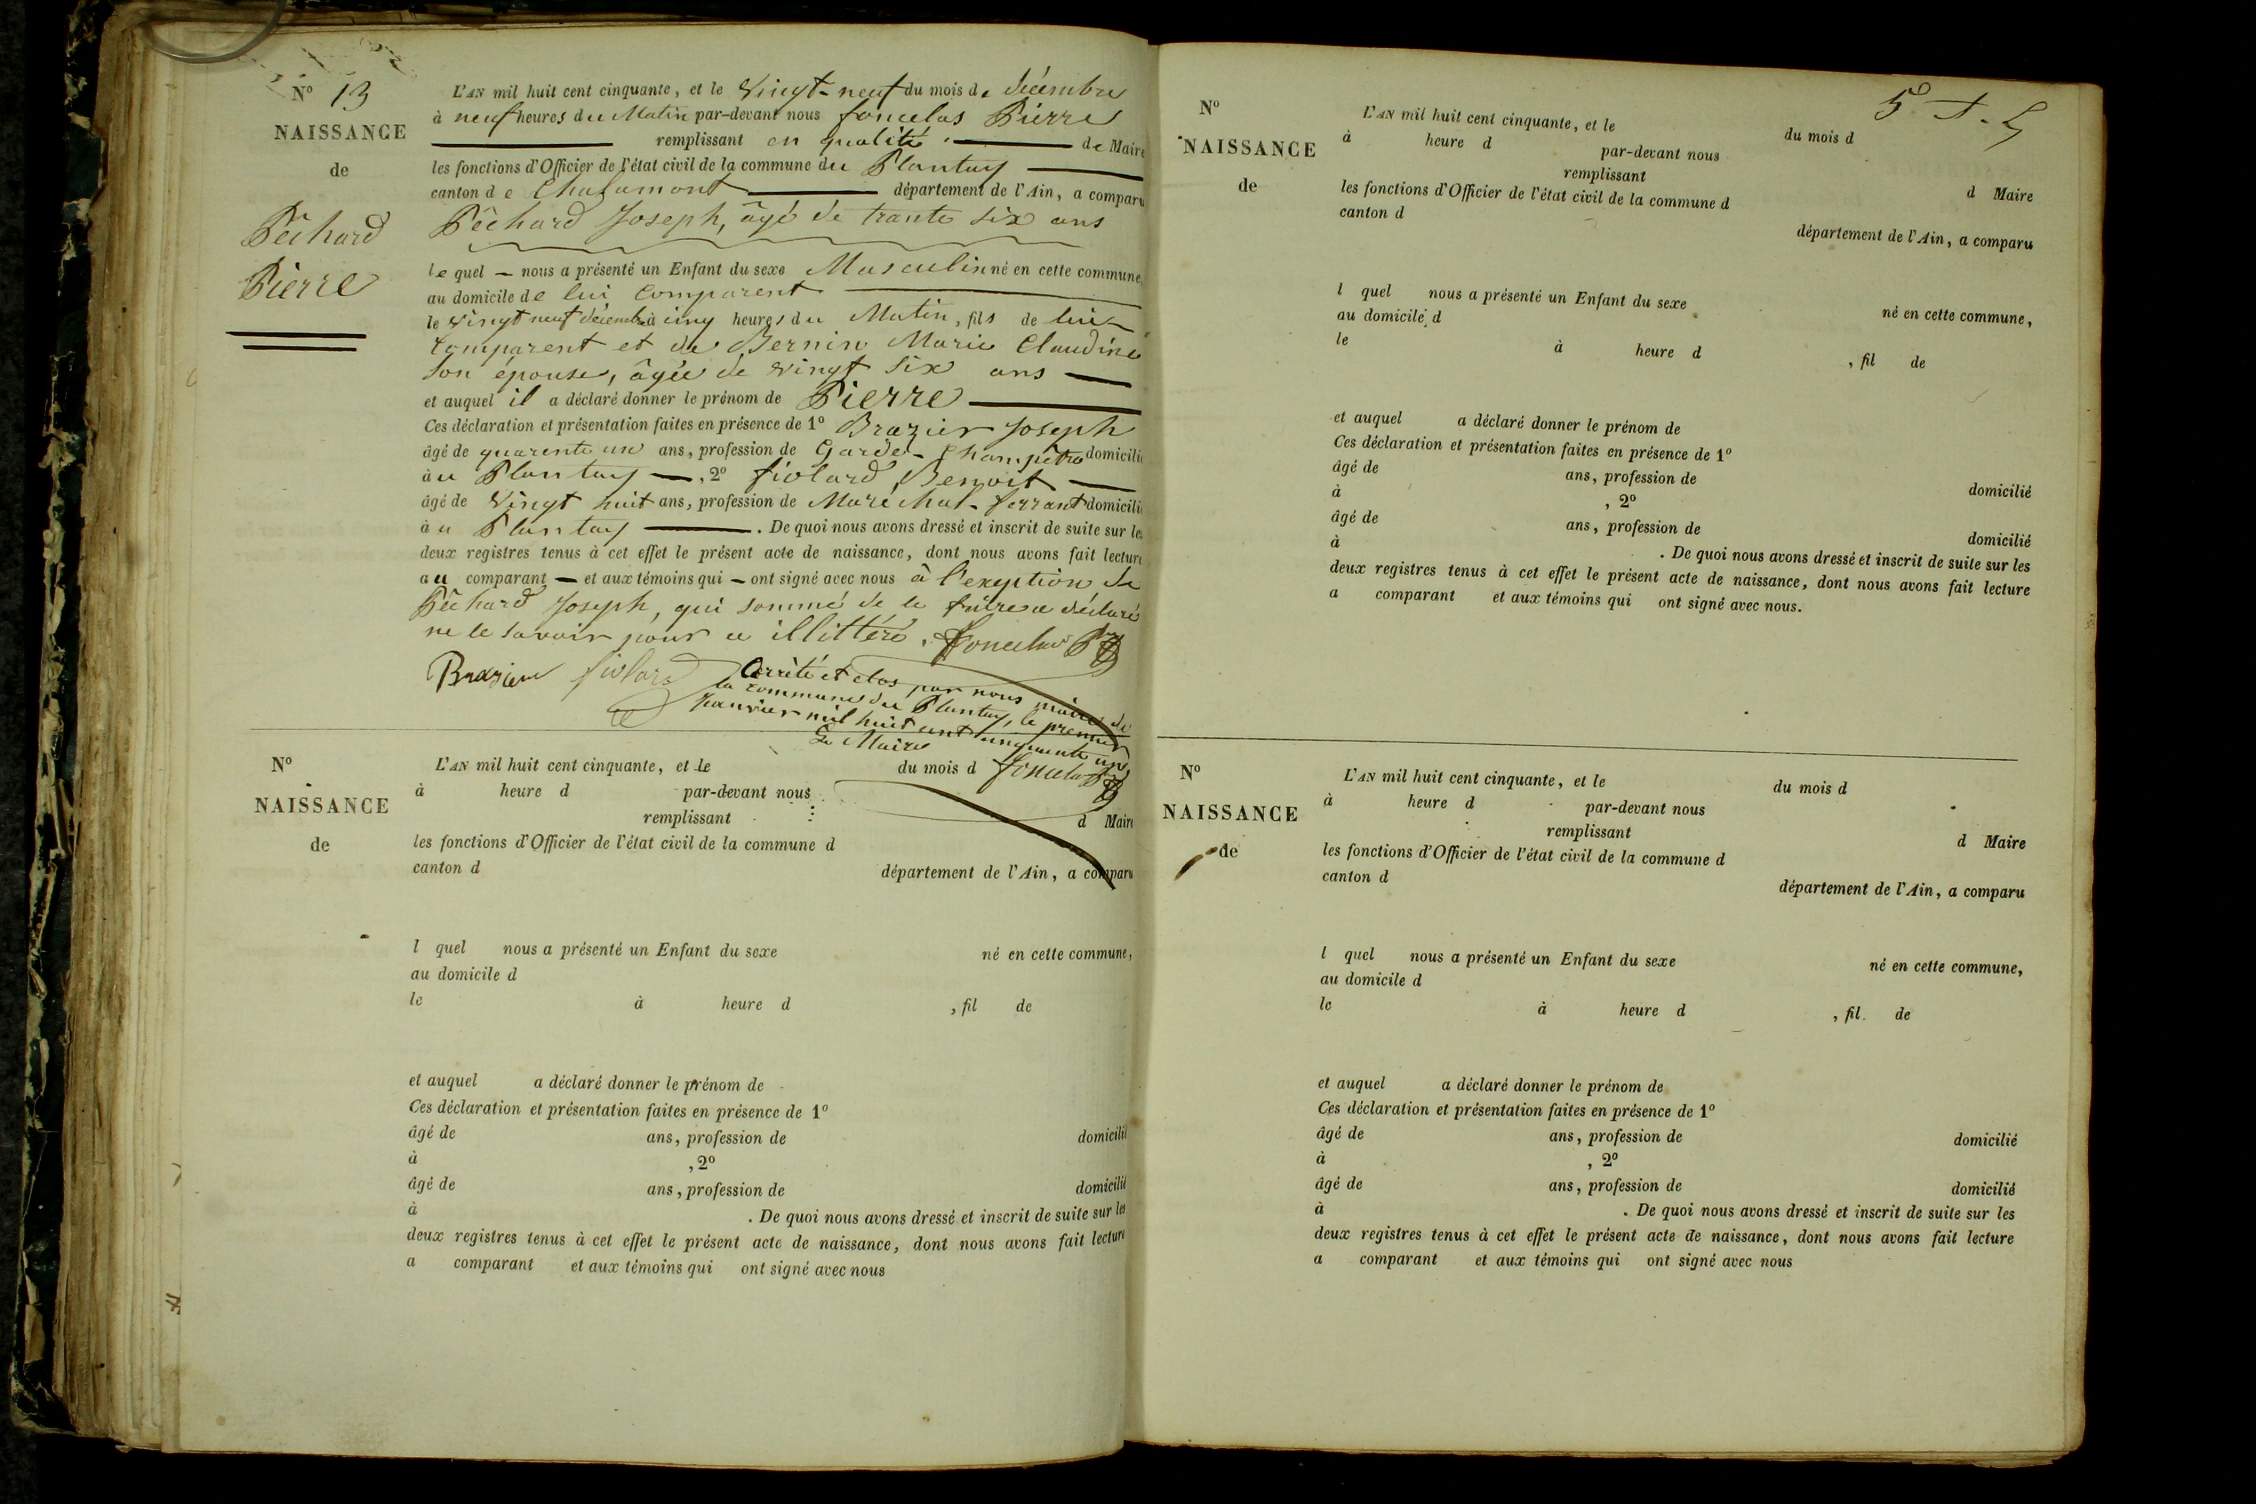 N° 13
NAISSANCE
de
Pêchard
Pierre
L'AN mil huit cent cinquante, et le vingt-neuf du mois de décembre
à neuf heures du Matin par-devant nous foncelas Pierre
remplissant en qualité de Maire
les fonctions d'Officier de l'état civil de la commune du Plantay
canton de Chalamont département de l'Ain, a comparu
Pêchard Joseph, âgé de trante six ans
le quel nous a présenté un Enfant du sexe Masculin né en cette commune,
au domicile de lui comparent
le vingt neuf décembre à cinq heures du Matin, fils de lui
comparent et de Bernin Marie Claudine
son épouse, âgée de vingt six ans
et auquel il a déclaré donner le prénom de Pierre
Ces déclaration et présentation faites en présence de 1° Brazier Joseph
âgé de quarente un ans, profession de Garde-Champêtre domicilié
au Plantay, 2° fiolard Benoit
âgé de vingt huit ans, profession de Maréchal-ferrant domicilié
au Plantay. De quoi nous avons dressé et inscrit de suite sur les
deux registres tenus à cet effet le présent acte de naissance, dont nous avons fait lecture
au comparant et aux témoins qui ont signé avec nous à l'exeption de
Pêchard Joseph, qui sommé de le faire a déclaré
ne le savoir pour ce illittéré. foncelas
Brazier fiolard
Arrêté et clos par nous maire de
la commune du Plantay, le premier
Janvier mil huit cent cinquante un
Le Maire
foncelas
N°
NAISSANCE
de
L'AN mil huit cent cinquante, et le du mois d
à heure d par-devant nous
remplissant d Maire
les fonctions d'Officier de l'état civil de la commune d
canton d département de l'Ain, a comparu
l quel nous a présenté un Enfant du sexe né en cette commune,
au domicile d
le à heure d , fil de
et auquel a déclaré donner le prénom de
Ces déclaration et présentation faites en présence de 1°
âgé de ans, profession de domicilié
à , 2°
âgé de ans, profession de domicilié
à . De quoi nous avons dressé et inscrit de suite sur les
deux registres tenus à cet effet le présent acte de naissance, dont nous avons fait lecture
a comparant et aux témoins qui ont signé avec nous
N°
NAISSANCE
de
L'AN mil huit cent cinquante, et le du mois d
à heure d par-devant nous
remplissant d Maire
les fonctions d'Officier de l'état civil de la commune d
canton d département de l'Ain, a comparu
l quel nous a présenté un Enfant du sexe né en cette commune,
au domicile d
le à heure d , fil de
et auquel a déclaré donner le prénom de
Ces déclaration et présentation faites en présence de 1°
âgé de ans, profession de domicilié
à , 2°
âgé de ans, profession de domicilié
à . De quoi nous avons dressé et inscrit de suite sur les
deux registres tenus à cet effet le présent acte de naissance, dont nous avons fait lecture
a comparant et aux témoins qui ont signé avec nous.
N°
NAISSANCE
de
L'AN mil huit cent cinquante, et le du mois d
à heure d par-devant nous
remplissant d Maire
les fonctions d'Officier de l'état civil de la commune d
canton d département de l'Ain, a comparu
l quel nous a présenté un Enfant du sexe né en cette commune,
au domicile d
le à heure d , fil. de
et auquel a déclaré donner le prénom de
Ces déclaration et présentation faites en présence de 1°
âgé de ans, profession de domicilié
à , 2°
âgé de ans, profession de domicilié
à . De quoi nous avons dressé et inscrit de suite sur les
deux registres tenus à cet effet le présent acte de naissance, dont nous avons fait lecture
a comparant et aux témoins qui ont signé avec nous